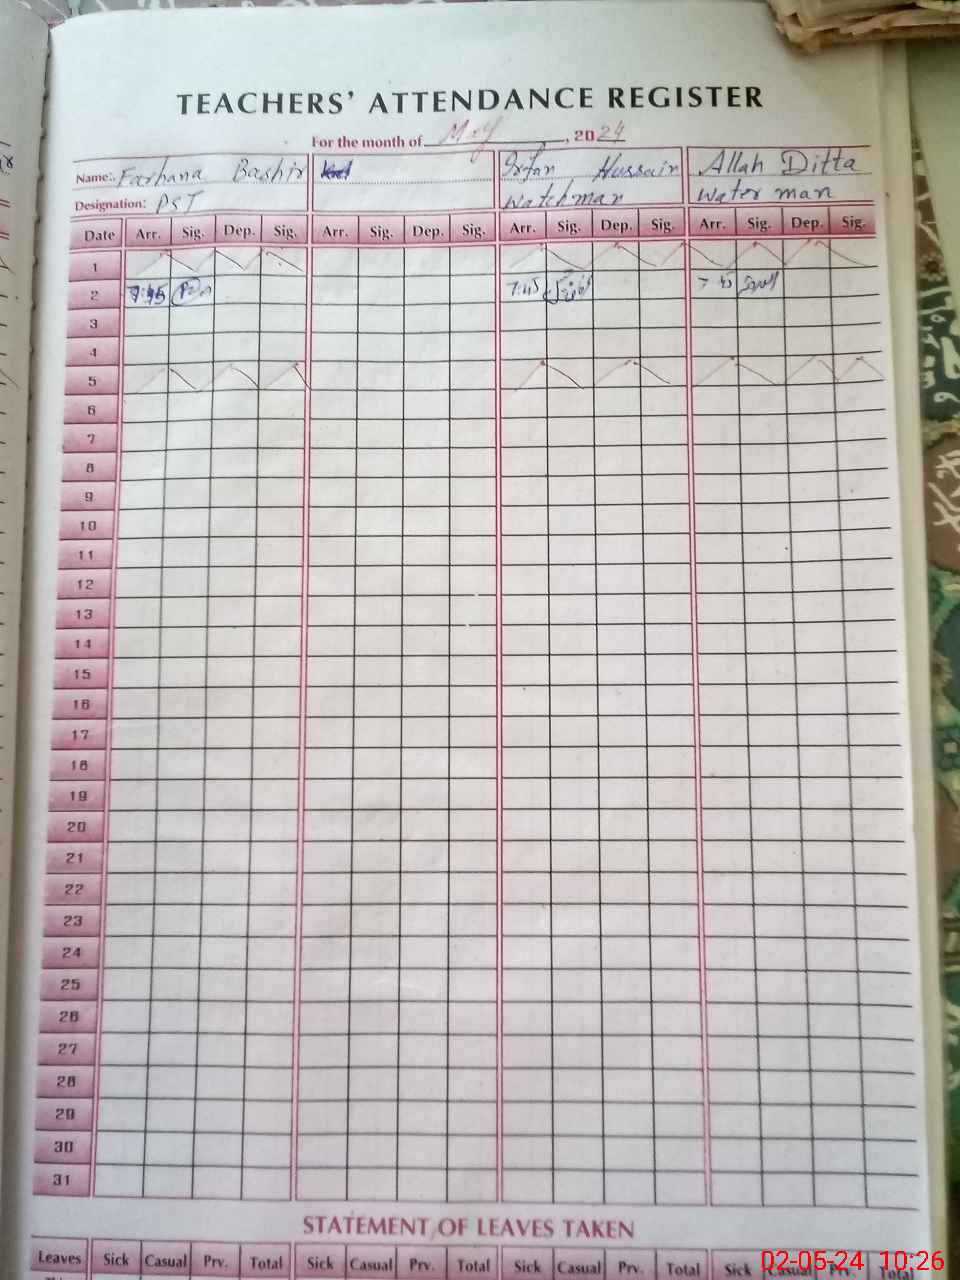 TEACHERS' ATTENDANCE REGISTER
For the month of May, 2024
Name: Farhana Bashir Irfan Hussain Allah Ditta
Designation: PST Watchman Water man
Date Arr. Sig. Dep. Sig. Arr. Sig. Dep. Sig. Arr. Sig. Dep. Sig. Arr. Sig. Dep. Sig.
1
2 7:45 7:45 7 45
3
4
5
6
7
8
9
10
11
12
13
14
15
16
17
18
19
20
21
22
23
24
25
26
27
28
29
30
31
STATEMENT OF LEAVES TAKEN
Leaves Sick Casual Prv. Total Sick Casual Prv. Total Sick Casual Prv. Total Sick Casual Prv. Total
02-05-24 10:26